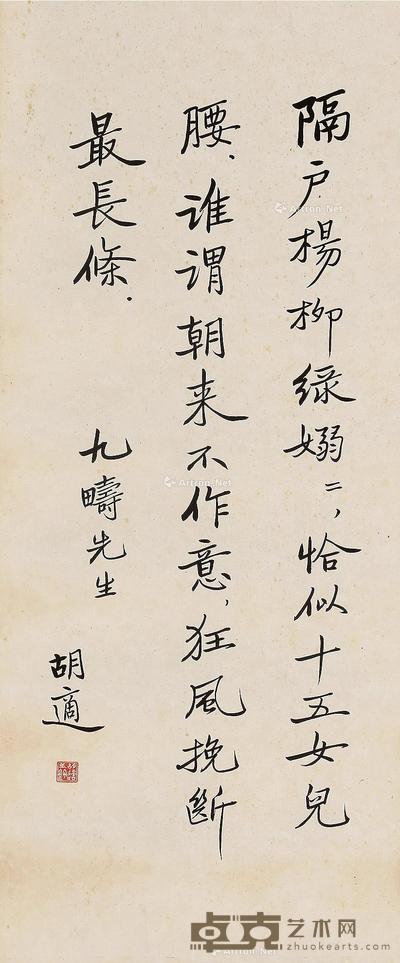 隔户楊柳綠嫋〻，恰似十五女兒
腰、谁謂朝来不作意，狂風挽斷
最長條．
九疇先生
胡適
Artron.Net
Artron.Net
Artron.Net
卓克艺术网
zhuokearts.com